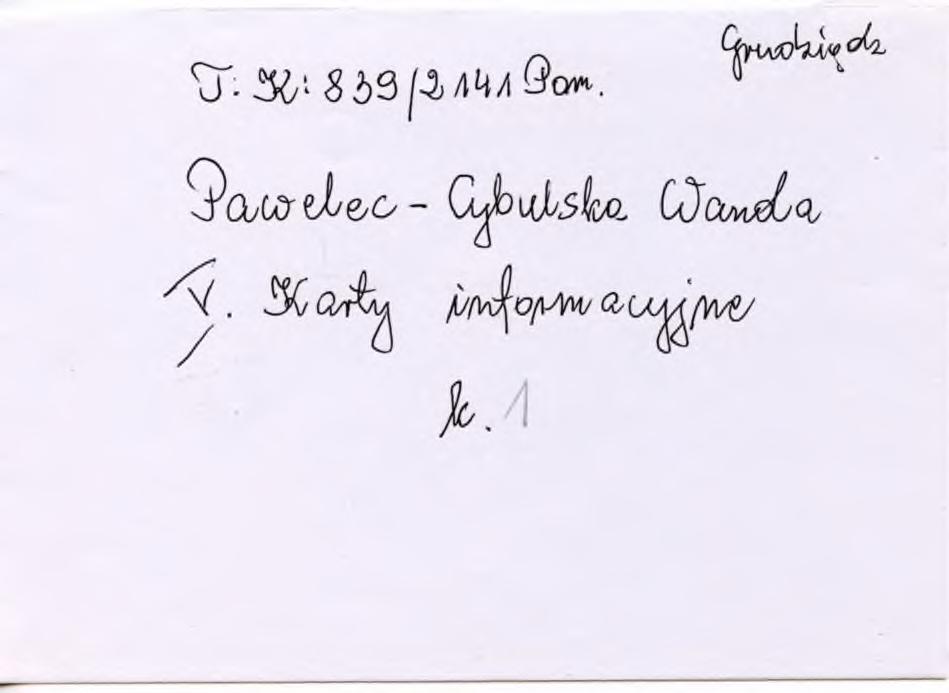 Grudziądz
T: K: 839/2141 Pom.
Pawelec - Cybulska Wanda
V. Karty informacyjne
k. 1